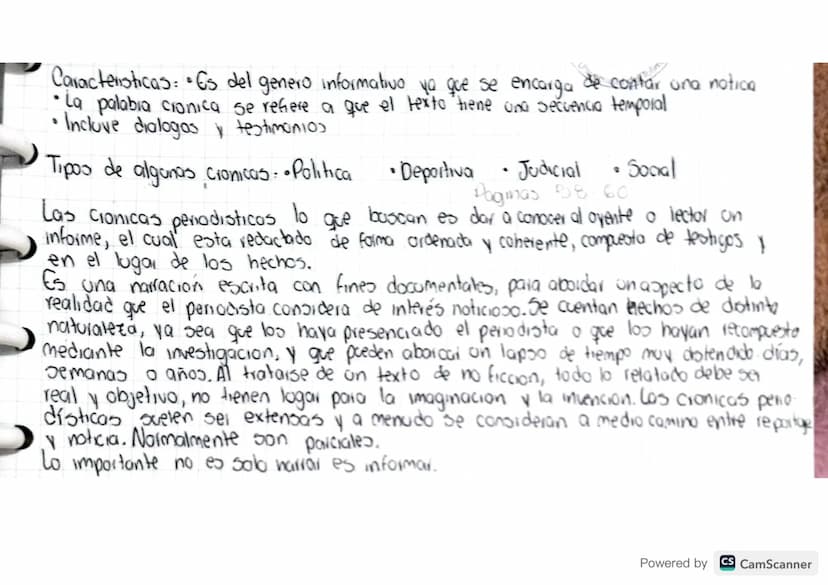 Caracteristicas: • Es del genero informativo ya que se encarga de contar una notica
• La palabra cronica se refiere a que el texto tiene una secuencia temporal
• Incluye dialogos y testimonios
Tipos de algunas cronicas: • Politica • Deportiva • Judicial • Social
Paginas 58 60
Las cronicas periodisticas lo que buscan es dar a conocer al oyente o lector un
informe, el cual esta redactado de forma ordenada y coherente, compuesta de testigos y
en el lugar de los hechos.
Es una narración escrita con fines documentales, para abordar un aspecto de la
realidad que el periodista considera de interés noticioso. Se cuentan hechos de distinta
naturaleza, ya sea que los haya presenciado el periodista o que los hayan recompuesto
mediante la investigacion, y que pueden abarcar un lapso de tiempo muy distendido días,
semanas o años. Al tratarse de un texto de no ficcion, todo lo relatado debe ser
real y objetivo, no tienen lugar para la imaginacion y la invencion. Las cronicas perio-
dísticas suelen ser extensas y a menudo se consideran a medio camino entre reportaje
y noticia. Normalmente son parciales.
Lo importante no es solo narrar es informar.
Powered by CS CamScanner